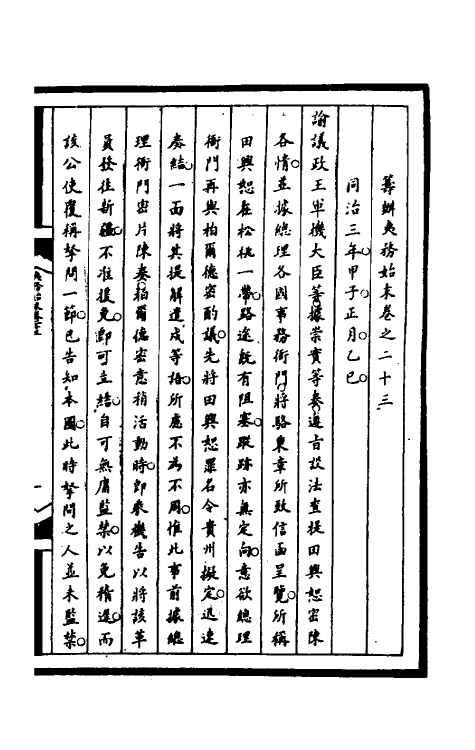 籌辦夷務始末卷之二十三
同治三年。甲子。正月。乙巳。
諭議政王軍機大臣等。據崇實等奏。遵旨設法查提田興恕密陳
各情。並據總理各國事務衙門。將駱秉章所致信函呈覽。所稱
田興恕在松桃一帶。路途既有阻塞。蹤跡亦無定向。意欲總理
衙門再與柏爾德密酌議。先將田興恕罪名令貴州擬定。迅速
奏結。一面將其提解遣戍等語。所慮不為不周。惟此事前據總
理衙門密片陳奏。柏爾德密意稍活動時。即乘機告以將該革
員發往新疆。不准援免。即可立結。自可無庸監禁。以免稽遲。而
該公使覆稱拏問一節。已告知本國。此時拏問之人並未監禁。